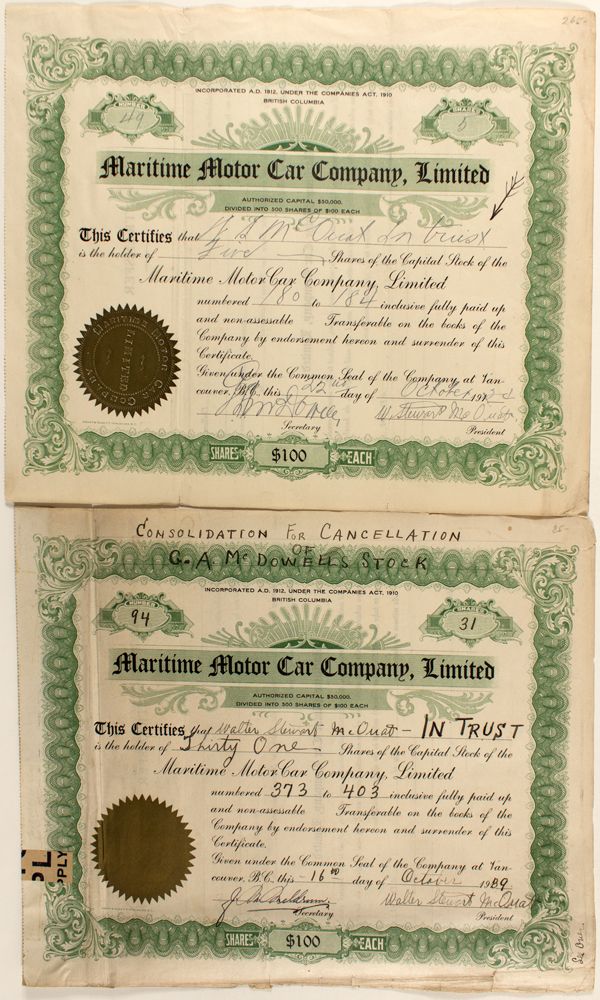 265-
INCORPORATED A.D. 1912, UNDER THE COMPANIES ACT, 1910
BRITISH COLUMBIA
NUMBER
49
SHARES
5
Maritime Motor Car Company, Limited
AUTHORIZED CAPITAL $50,000.
DIVIDED INTO 500 SHARES OF $100 EACH
This Certifies that McQuat In trust
is the holder of Five Shares of the Capital Stock of the
Maritime Motor Car Company, Limited
numbered 180 to 184 inclusive fully paid up
and non-assessable Transferable on the books of the
Company by endorsement hereon and surrender of this
Certificate.
Given under the Common Seal of the Company at Van-
couver, B.C. this 22nd day of October 193
W. Stewart McQuat
Secretary
President
MARITIME MOTOR CAR COMPANY LIMITED
SHARES $100 EACH
CONSOLIDATION FOR CANCELLATION
OF
G. A. McDOWELLS STOCK
INCORPORATED A.D. 1912, UNDER THE COMPANIES ACT, 1910
BRITISH COLUMBIA
NUMBER
94
SHARES
31
Maritime Motor Car Company, Limited
AUTHORIZED CAPITAL $50,000.
DIVIDED INTO 500 SHARES OF $100 EACH
This Certifies that Walter Stewart McQuat - IN TRUST
is the holder of Thirty One Shares of the Capital Stock of the
Maritime Motor Car Company, Limited
numbered 373 to 403 inclusive fully paid up
and non-assessable Transferable on the books of the
Company by endorsement hereon and surrender of this
Certificate.
Given under the Common Seal of the Company at Van-
couver, B.C. this -16th day of October 1939
Walter Stewart McQuat
Secretary
President
SHARES $100 EACH
PL
PPLY